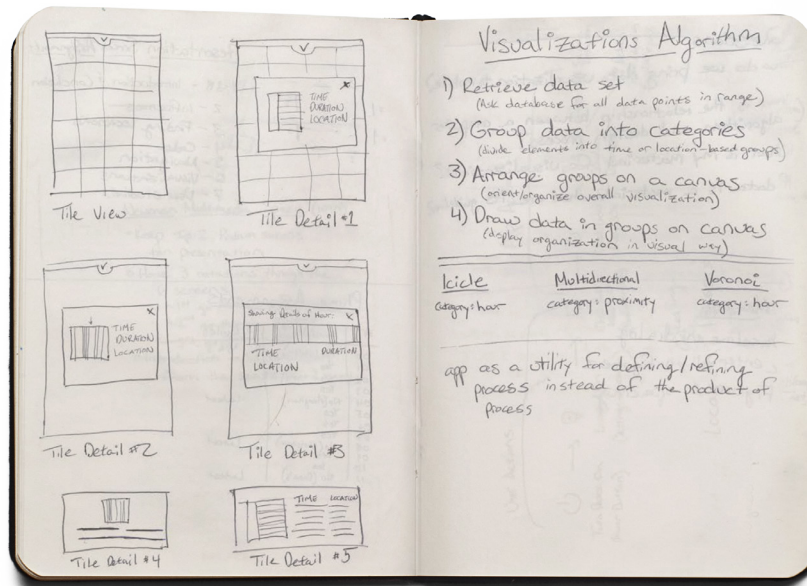 Tile View
X
TIME
DURATION
LOCATION
Tile Detail #1
X
TIME
DURATION
LOCATION
Tile Detail #2
X
of Hour:
TIME
DURATION
LOCATION
Tile Detail #3
Tile Detail #4
TIME
LOCATION
Tile Detail #5
Visualizations Algorithm
1) Retrieve data set
(Ask database for all data points in range)
2) Group data into categories
(divide elements into time or location-based groups)
3) Arrange groups on a canvas
(orient/organize overall visualization)
4) Draw data in groups on canvas
(display organization in visual way)
Icicle
Multidirectional
Voronoi
category: hour
category: proximity
category: hour
app as a utility for defining/refining
process instead of the product of
process